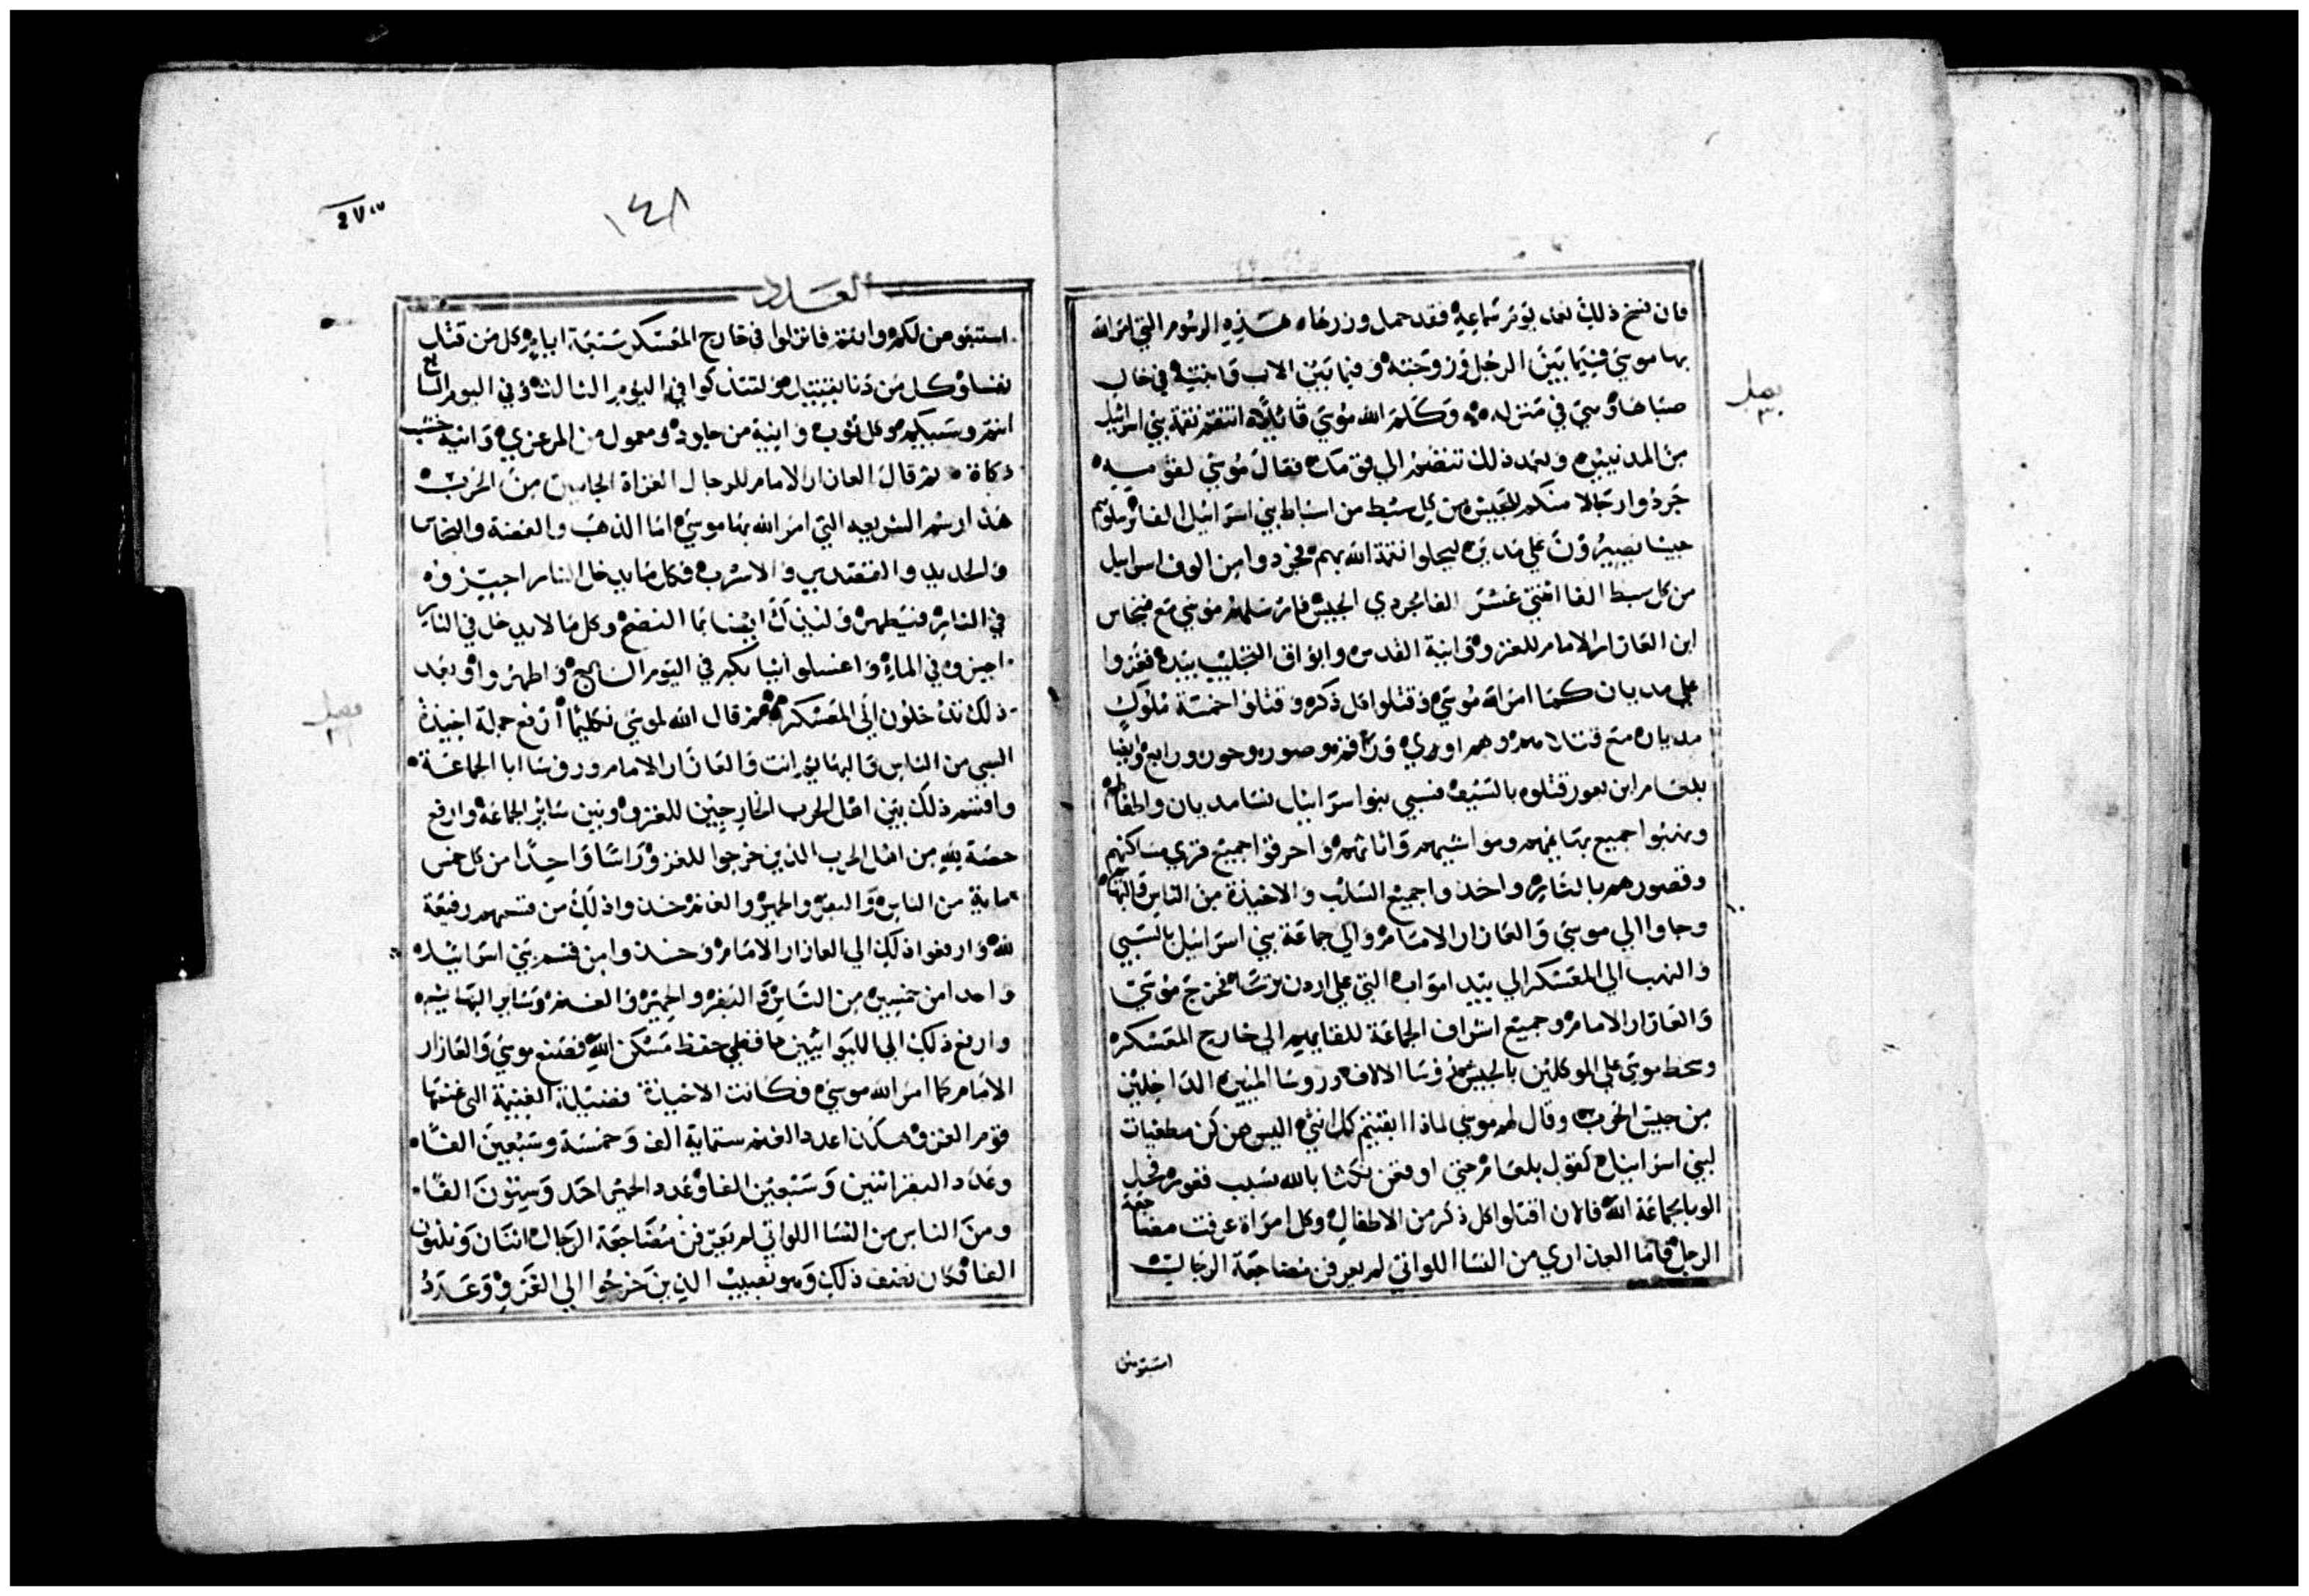 فان فسخ ذلك بعد يوم سماعه فقد حمل وزرها ه هذه الرسوم التي امر الله
بها موسي فيما بين الرجل وزوجته وفيما بين الاب وابنته في حال
صباها وهي في منزله وكلم الله موسي قائلا انتقم نقمة بني اسرائيل
من المدنيين وبعد ذلك تنضم الي قومك فقال موسي لقومه
جردوا رجالا منكم للجيش من كل سبط من اسباط بني اسرائيل الفا
جيشا يصيرون علي مدين ليحلوا نقمة الله بهم فجردوا من الوف اسراييل
من كل سبط الفا اثني عشر الفا مجردي الجيش فارسلهم موسي مع فينحاس
ابن العازار الامام للغزو وانية القدس وابواق التجليب بيده فغزوا
علي مديان كما امر الله موسي وقتلوا كل ذكر وقتلوا خمسة ملوك
مديان مع قتلاهم وهم اوي وراقم وصور وحور ورابع وايضا
بلعام ابن بعور قتلوه بالسيف فسبي بنو اسراييل نسا مديان واطفالهم
ونهبوا جميع بهايمهم ومواشيهم واثاثهم واحرقوا جميع قري مساكنهم
وقصورهم بالنار واخذوا جميع السلب والاخيذة من الناس والبهايم
وجاوا الي موسي والعازار الامام والي جماعة بني اسراييل بالسبي
والنهب الي المعسكر الي بيدا مواب التي علي اردن يرشا فخرج موسي
والعازار الامام وجميع اشراف الجماعة للقايهم الي خارج المعسكر
وسخط موسي علي الموكلين بالجيش روسا الالاف وروسا الميين الداخلين
من جيش الحرب وقال لهم موسي لماذا ابقيتم كل انثي اليس هن كن معطيات
لبني اسراييل كقول بلعام حتي اوقعن نكثا بالله بسبب فغور فحل
الوبا بجماعة الله فالان اقتلوا كل ذكر من الاطفال وكل امراة عرفت مضاجعة
الرجل فاما العذاري من النسا اللواتي لم يعرفن مضاجعة الرجال
استبقوهن
فصل
٣
١٤٨
العدد
استبقوهن لكم وانتم فانزلوا في خارج المعسكر سبعة ايام كل من قتل
نفسا وكل من دنا بقتيل ولتتذكوا في اليوم الثالث وفي اليوم السابع
انتم وسبيكم وكل ثوب وانية من جلود ومعمول من المرعزي وانية خشب
ذكاة ثم قال العازار الامام للرجال الغزاة الجايين من الحرب
هذا رسم الشريعه التي امر الله بها موسي اما الذهب والفضة والنحاس
والحديد والقصدير والاسرب فكل ما يدخل النار اجيزوه
في النار فيطهر وليذك ايضا بما النضح وكل ما لا يدخل في النار
اجيزوه في الماء واغسلوا ثيابكم في اليوم السابع واطهروا وبعد
ذلك تدخلون الي المعسكر ثم قال الله لموسي تكليما ارفع جملة اخيذة
السبي من الناس والبهايم انت والعازار الامام وروسا ابا الجماعة
واقسم ذلك بين اهل الحرب الخارجين للغزو وبين ساير الجماعة وارفع
حصة لله من اهل الحرب الذين خرجوا للغزو راسا واحدا من كل خمس
ماية من الناس والبقر والحمير والغنم خذوا ذلك من قسمهم رفيعة
لله وارفعوا ذلك الي العازار الامام وخذوا من قسم بني اسراييل
واحدا من خمسين من الناس والبقر والحمير والغنم وساير البهايم
وارفع ذلك الي الليوانيين حافظي حفظ مسكن الله فصنع موسي والعازار
الامام كما امر الله موسي وكانت الاخيذة فضيلة الغنيمة التي غنمها
قوم الغزو هكذا عدد الغنم ستماية الف وخمسة وسبعين الفا
وعدد البقر اثنين وسبعين الفا وعدد الحمير احد وستون الفا
ومن الناس من النسا اللواتي لم يعرفن مضاجعة الرجال اثنان وثلثون
الفا فكان نصف ذلك وهو نصيب الذين خرجوا الي الغزو وعدد
فصل